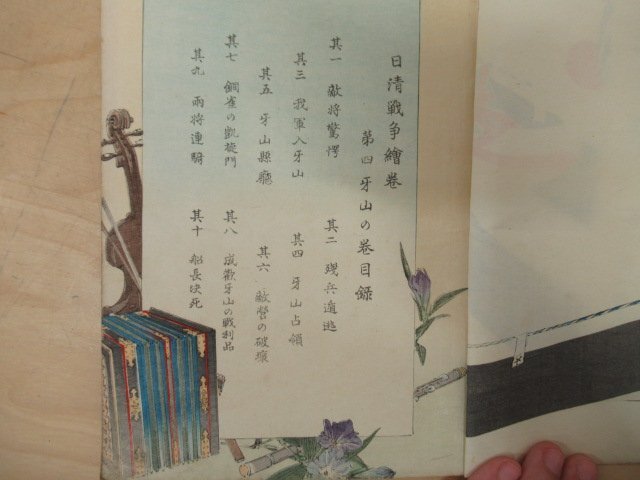 日清戦争繪卷
第四牙山の卷目録
其一 敵将驚愕
其二 残兵遁逃
其三 我軍入牙山
其四 牙山占領
其五 牙山縣廳
其六 敵営の破壞
其七 銅雀の凱旋門
其八 成歡牙山の戦利品
其九 兩将連騎
其十 船長決死